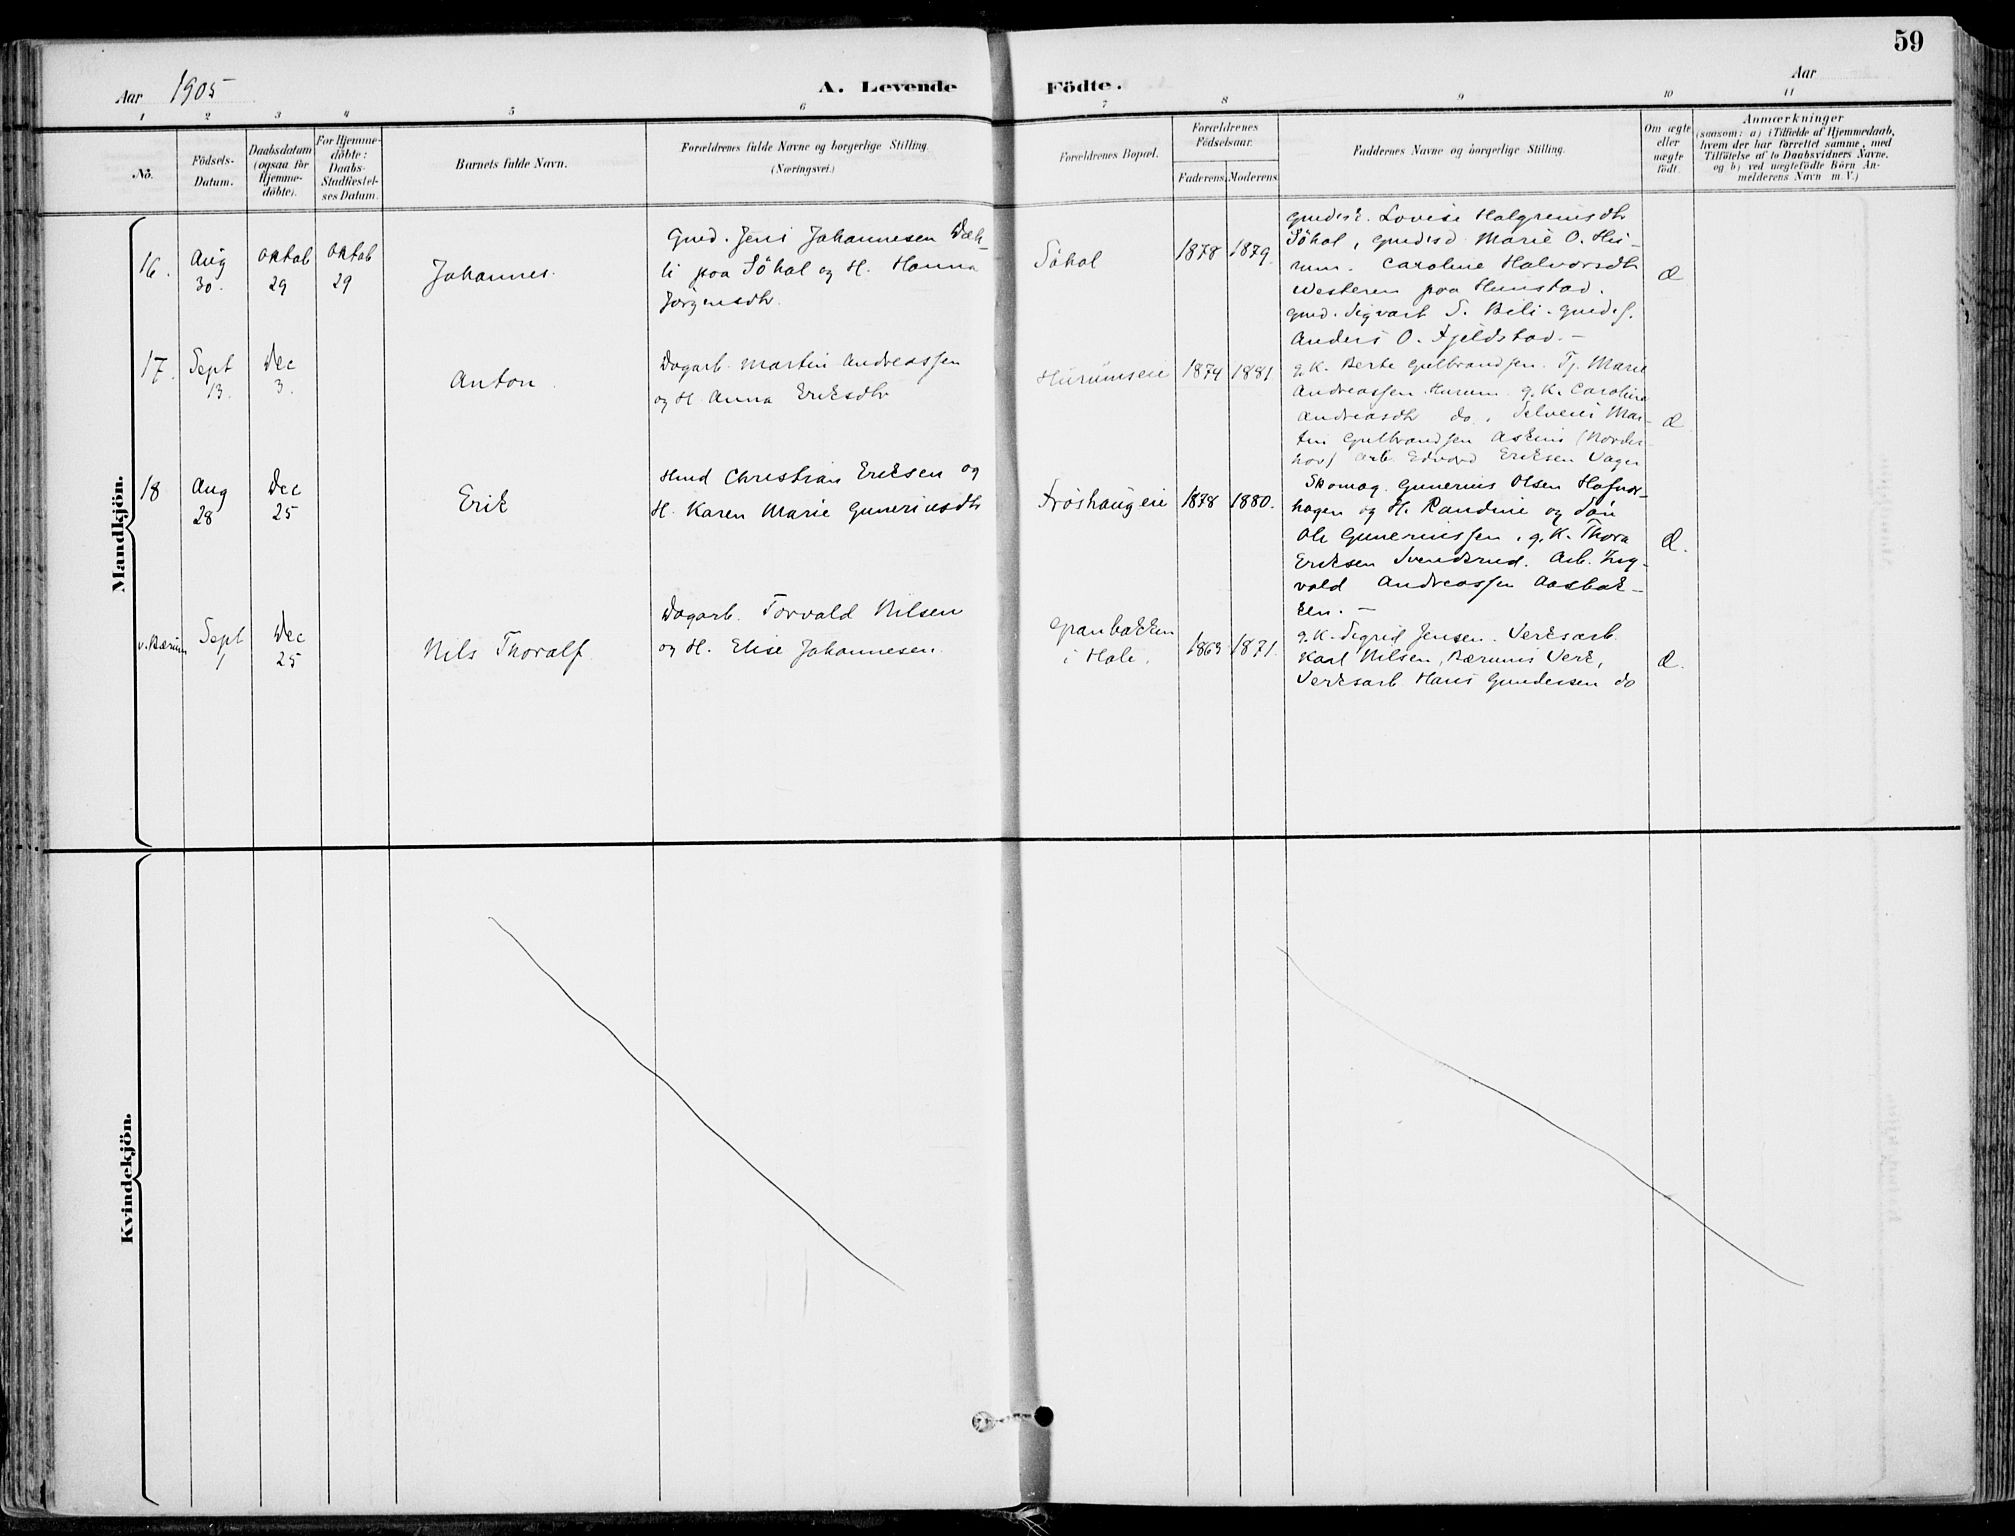 59
Aar 1905
A. Levende Födte.
Aar
1 2 3 4 5 6 7 8 9 10 11
No.
Födsels-
Datum.
Daabsdatum
(ogsaa för
Hjemme-
döbte).
For Hjemme-
döbte:
Daabs-
Stadfæstel-
ses Datum.
Barnets fulde Navn.
Forældrenes fulde Navne og borgerlige Stilling.
(Næringsvei.)
Forældrenes Bopæl.
Forældrenes
Födselsaar.
Faderens. Moderens.
Faddernes Navne og borgerlige Stilling.
Om ægte
eller
uægte
födt.
Anmærkninger
(saasom: a) i Tilfælde af Hjemmedaab,
hvem der har forrettet samme, med
Tilföielse af to Daabsvidners Navne,
og b) ved uægtefödte Börn An-
melderens Navn m. V.)
Mandkjön.
16.
Aug
30.
Oktob
29
Oktob
29
Johannes.
Gmd. Jens Johannesen Dæh-
li paa Söhol og H. Hanna
Jörgensdtr.
Söhol
1878 1879.
Lovise Halgrimsdtr
Söhol, Marie O. Hu-
rum. Caroline Halvorsdtr
Westeren paa Hunstad.
gmd. Sigvart S. Bili. gmdss.
Anders O. Fjeldstad. —
Æ
17.
Sept
13.
Dec
3.
Anton.
Dagarb. Martin Andreassen
og H. Anna Eriksdtr
Hurumseie
1874 1881
g.K. Berte Gulbrandsen. Tj. Marie
Andreassen Hurum. g.K. Caroline
Andreasdtr do, Selveier Mar-
tin Gulbrandsen Askim (Norder-
hov) arb. Edvard Eriksen Vager
Æ
18
Aug
28
Dec
25
Erik
Hmd Christian Eriksen og
H. Karen Marie Guneriusdtr
Fröshaugeie
1878 1880.
Skomag. Gunerius Olsen Hafnor-
hagen og H. Randine og Sön
Ole Guneriussen, g.K. Thora
Eriksen Svendsrud. Arb. Ing-
vald Andreassen Aasbak-
ken. —
Æ.
v. Bærum
Sept
1
Dec
25
Nils Thoralf
Dagarb. Torvald Nilsen
og H. Elise Johannesen.
Granbakken
i Hole.
1863 1871.
g.K. Sigrid Jensen. Verksarb.
Karl Nilsen, Bærums Verk,
Verksarb. Hans Gundersen do
Æ.
Kvindekjön.